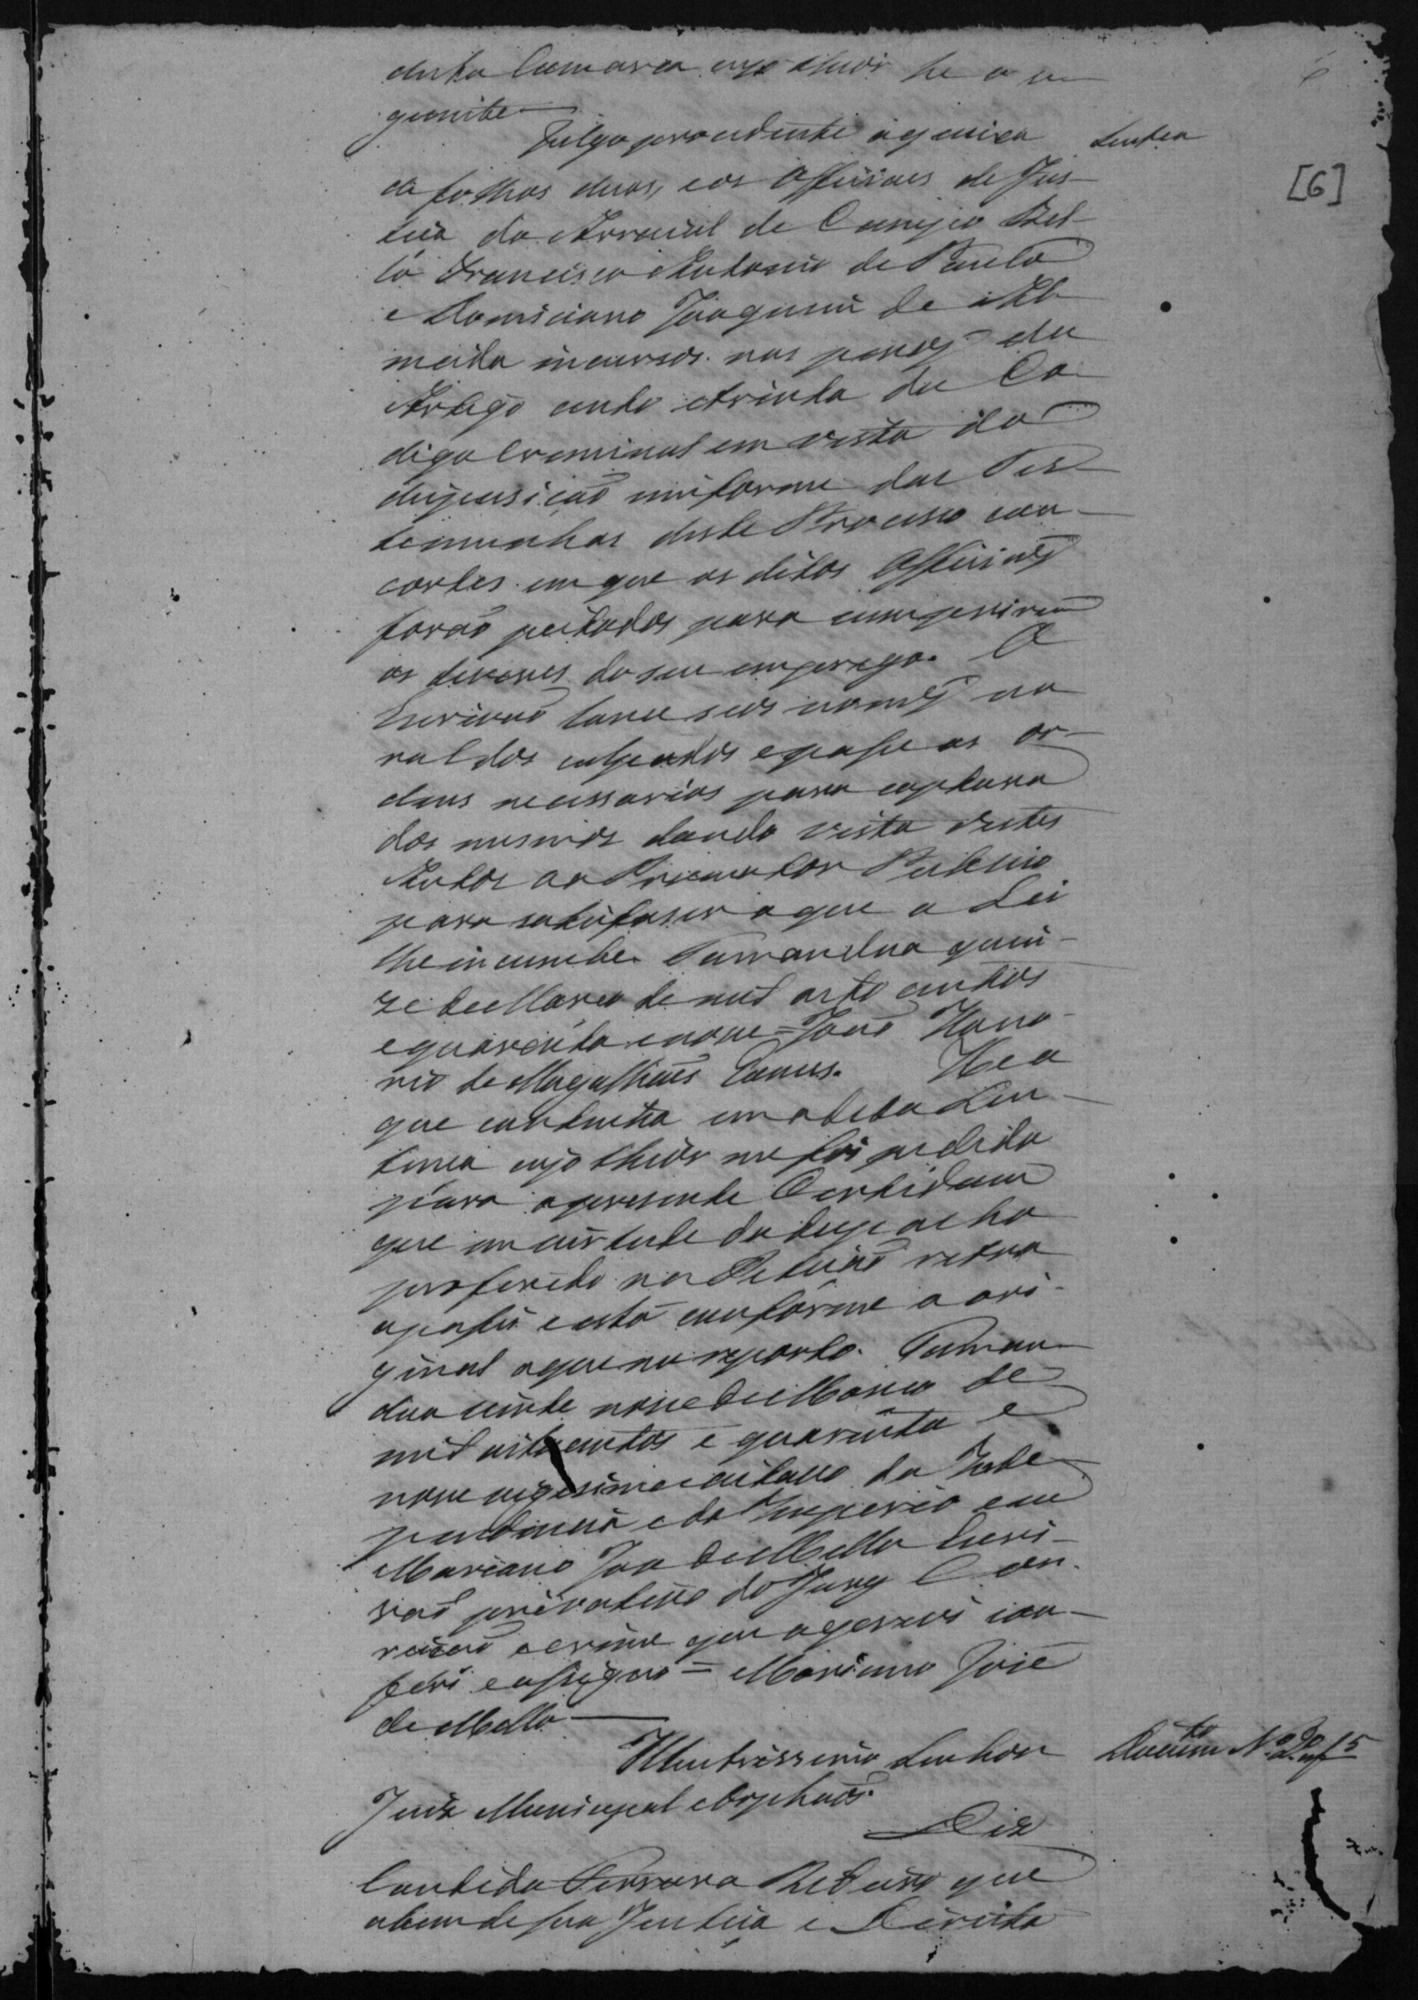 desta Comarca cujo theor he o se
guinte
Julgo procedente a queixa
Sentça
[6]
de folhas duas, e os Officiaes de Jus-
tiça do Arraial de Campo Bel-
lo Francisco Antonio de Paula
e Domiciano Joaquim de Al-
meida incursos nas penas do
Artigo cento e trinta do Co-
digo Criminal em vista do
depuisição uniforme das Tes-
temunhas deste Processo con-
cortes em que os ditos Officiaes
forão peitados para cumprirem
os deveres do seu emprego. O
Escrivão lance seos nomes no
rol dos culpados e passe as or-
dens necessarias para captura
dos mesmos dando vista destes
Autos ao Promotor Publico
para satisfaser o que a Lei
lhe incumbe. Tamandua quin-
ze de Março de mil oito centos
e quarenta e nove = João Hono-
rio de Magalhães Gomes. He o
que continha em a dita Sen-
tença cujo theor me foi pedido
para a presente Certidam
que em virtude do despacho
proferido na Petição retro
a passei e está conforme o ori-
ginal a que me reporto. Taman-
dua vinte nove de Março de
mil oitocentos e quarenta e
nove vigesimo oitavo da Inde-
pendencia e do Imperio e eu
Mariano Joze de Mello Escri-
vão privativo do Jury Con-
reição e crime que a escrevi con-
feri e assigno = Mariano José
de Mello
Illustrissimo Senhor
Docum.to N.o 5
Juiz Municipal e Orphãos.
Diz
Candida Ferrara que
abem de sua Justiça e Direito